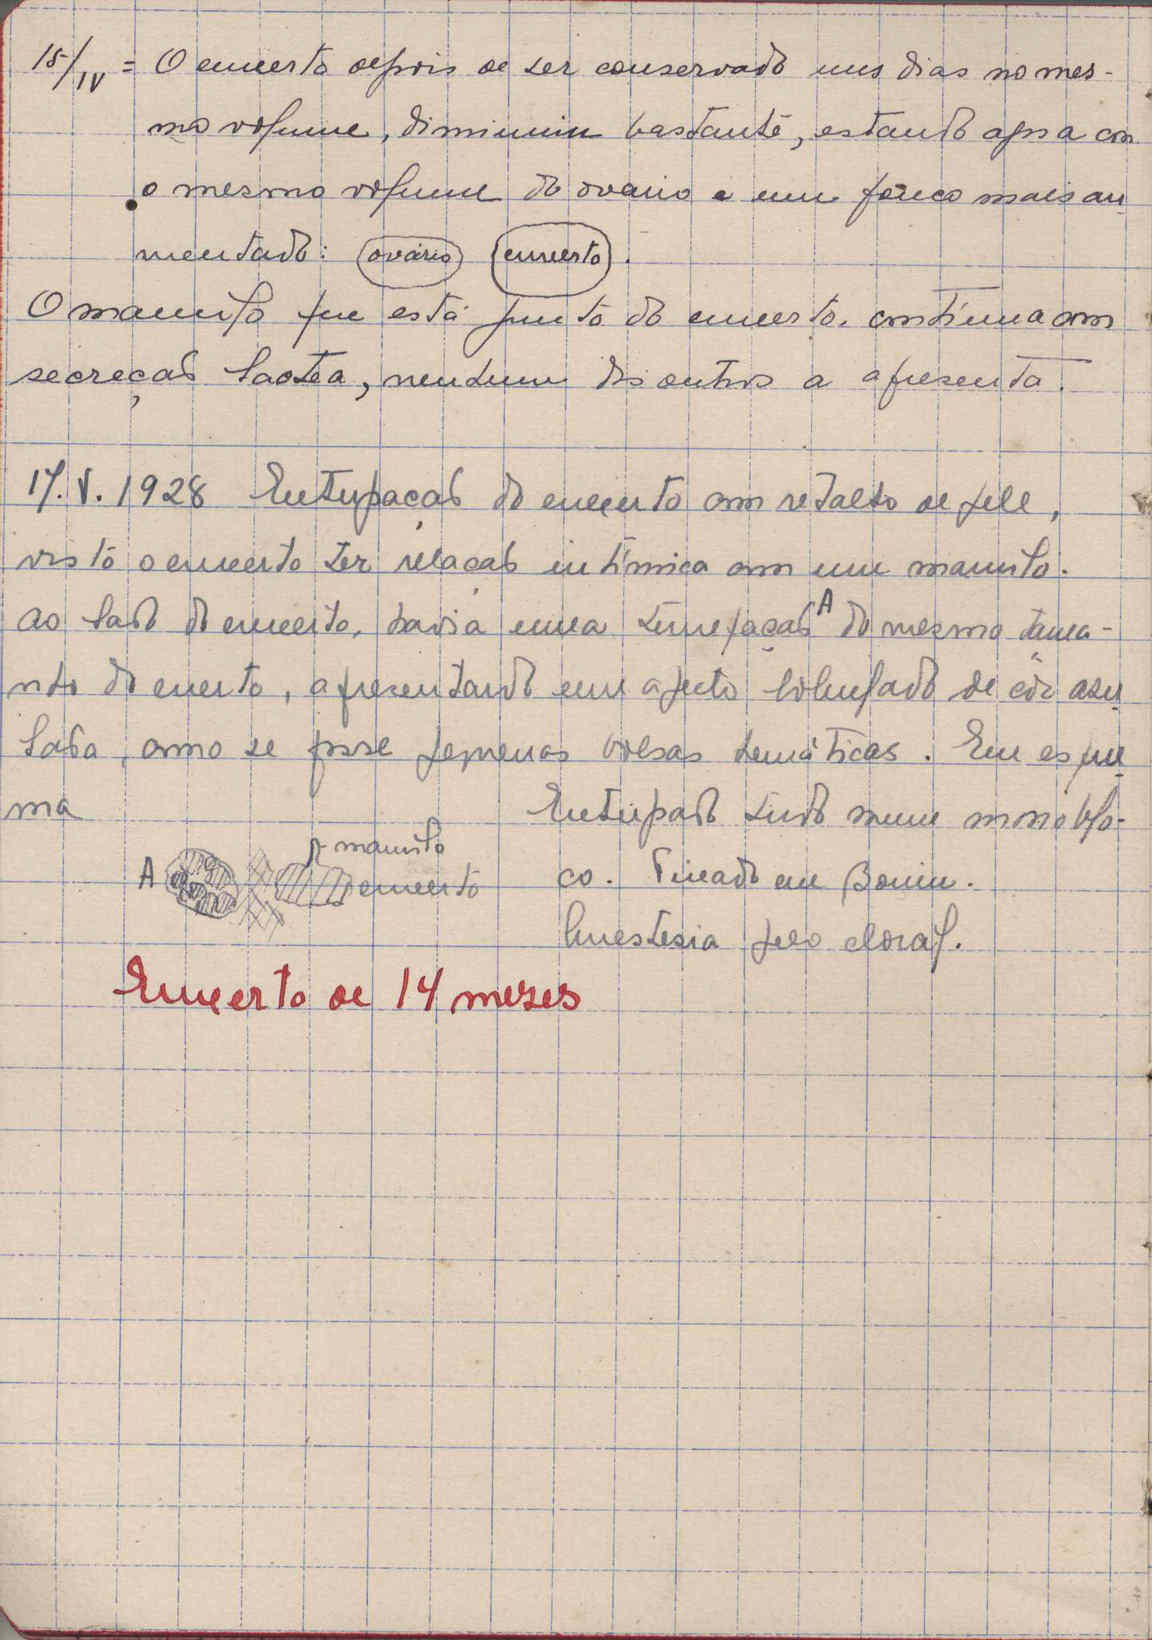 15/IV = O enxerto depois de ser conservado uns dias no mes-
mo volume, diminuiu bastante, estando agora com
o mesmo volume do ovario e um pouco mais au
mentado: ovário enxerto.
O mamilo que está junto do enxerto. continua com
secreção lactea, nenhum dos outros a apresenta.
17. V. 1928 Extirpação do enxerto com retalho de pele,
visto o enxerto ter relação intimica com um mamilo.
Ao lado do enxerto, havia uma tumefação A do mesmo tama-
nho do enerto, apresentando um aspeto bolhufado de côr azu
lada, como se fosse pequenas bolsas hemáticas. Em esque
ma
Extirpado tudo num monoblo-
co. Fixado em Bouin.
Anestesia pelo cloral.
A mamilo
enxerto
Enxerto de 14 mezes